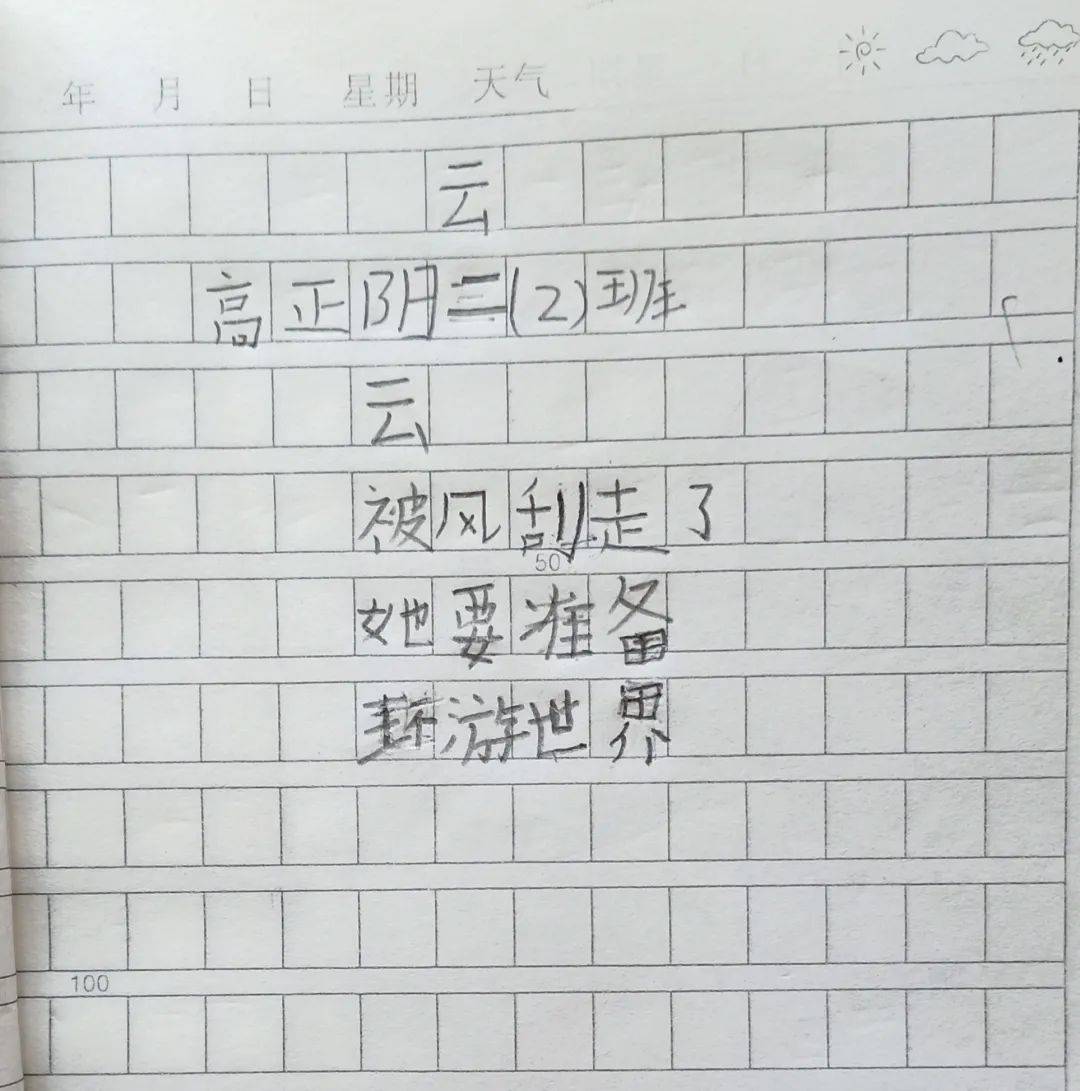 年 月 日 星期 天气
云
高正阴二(2)班
云
被风刮走了
她要准备
环游世界
50
100